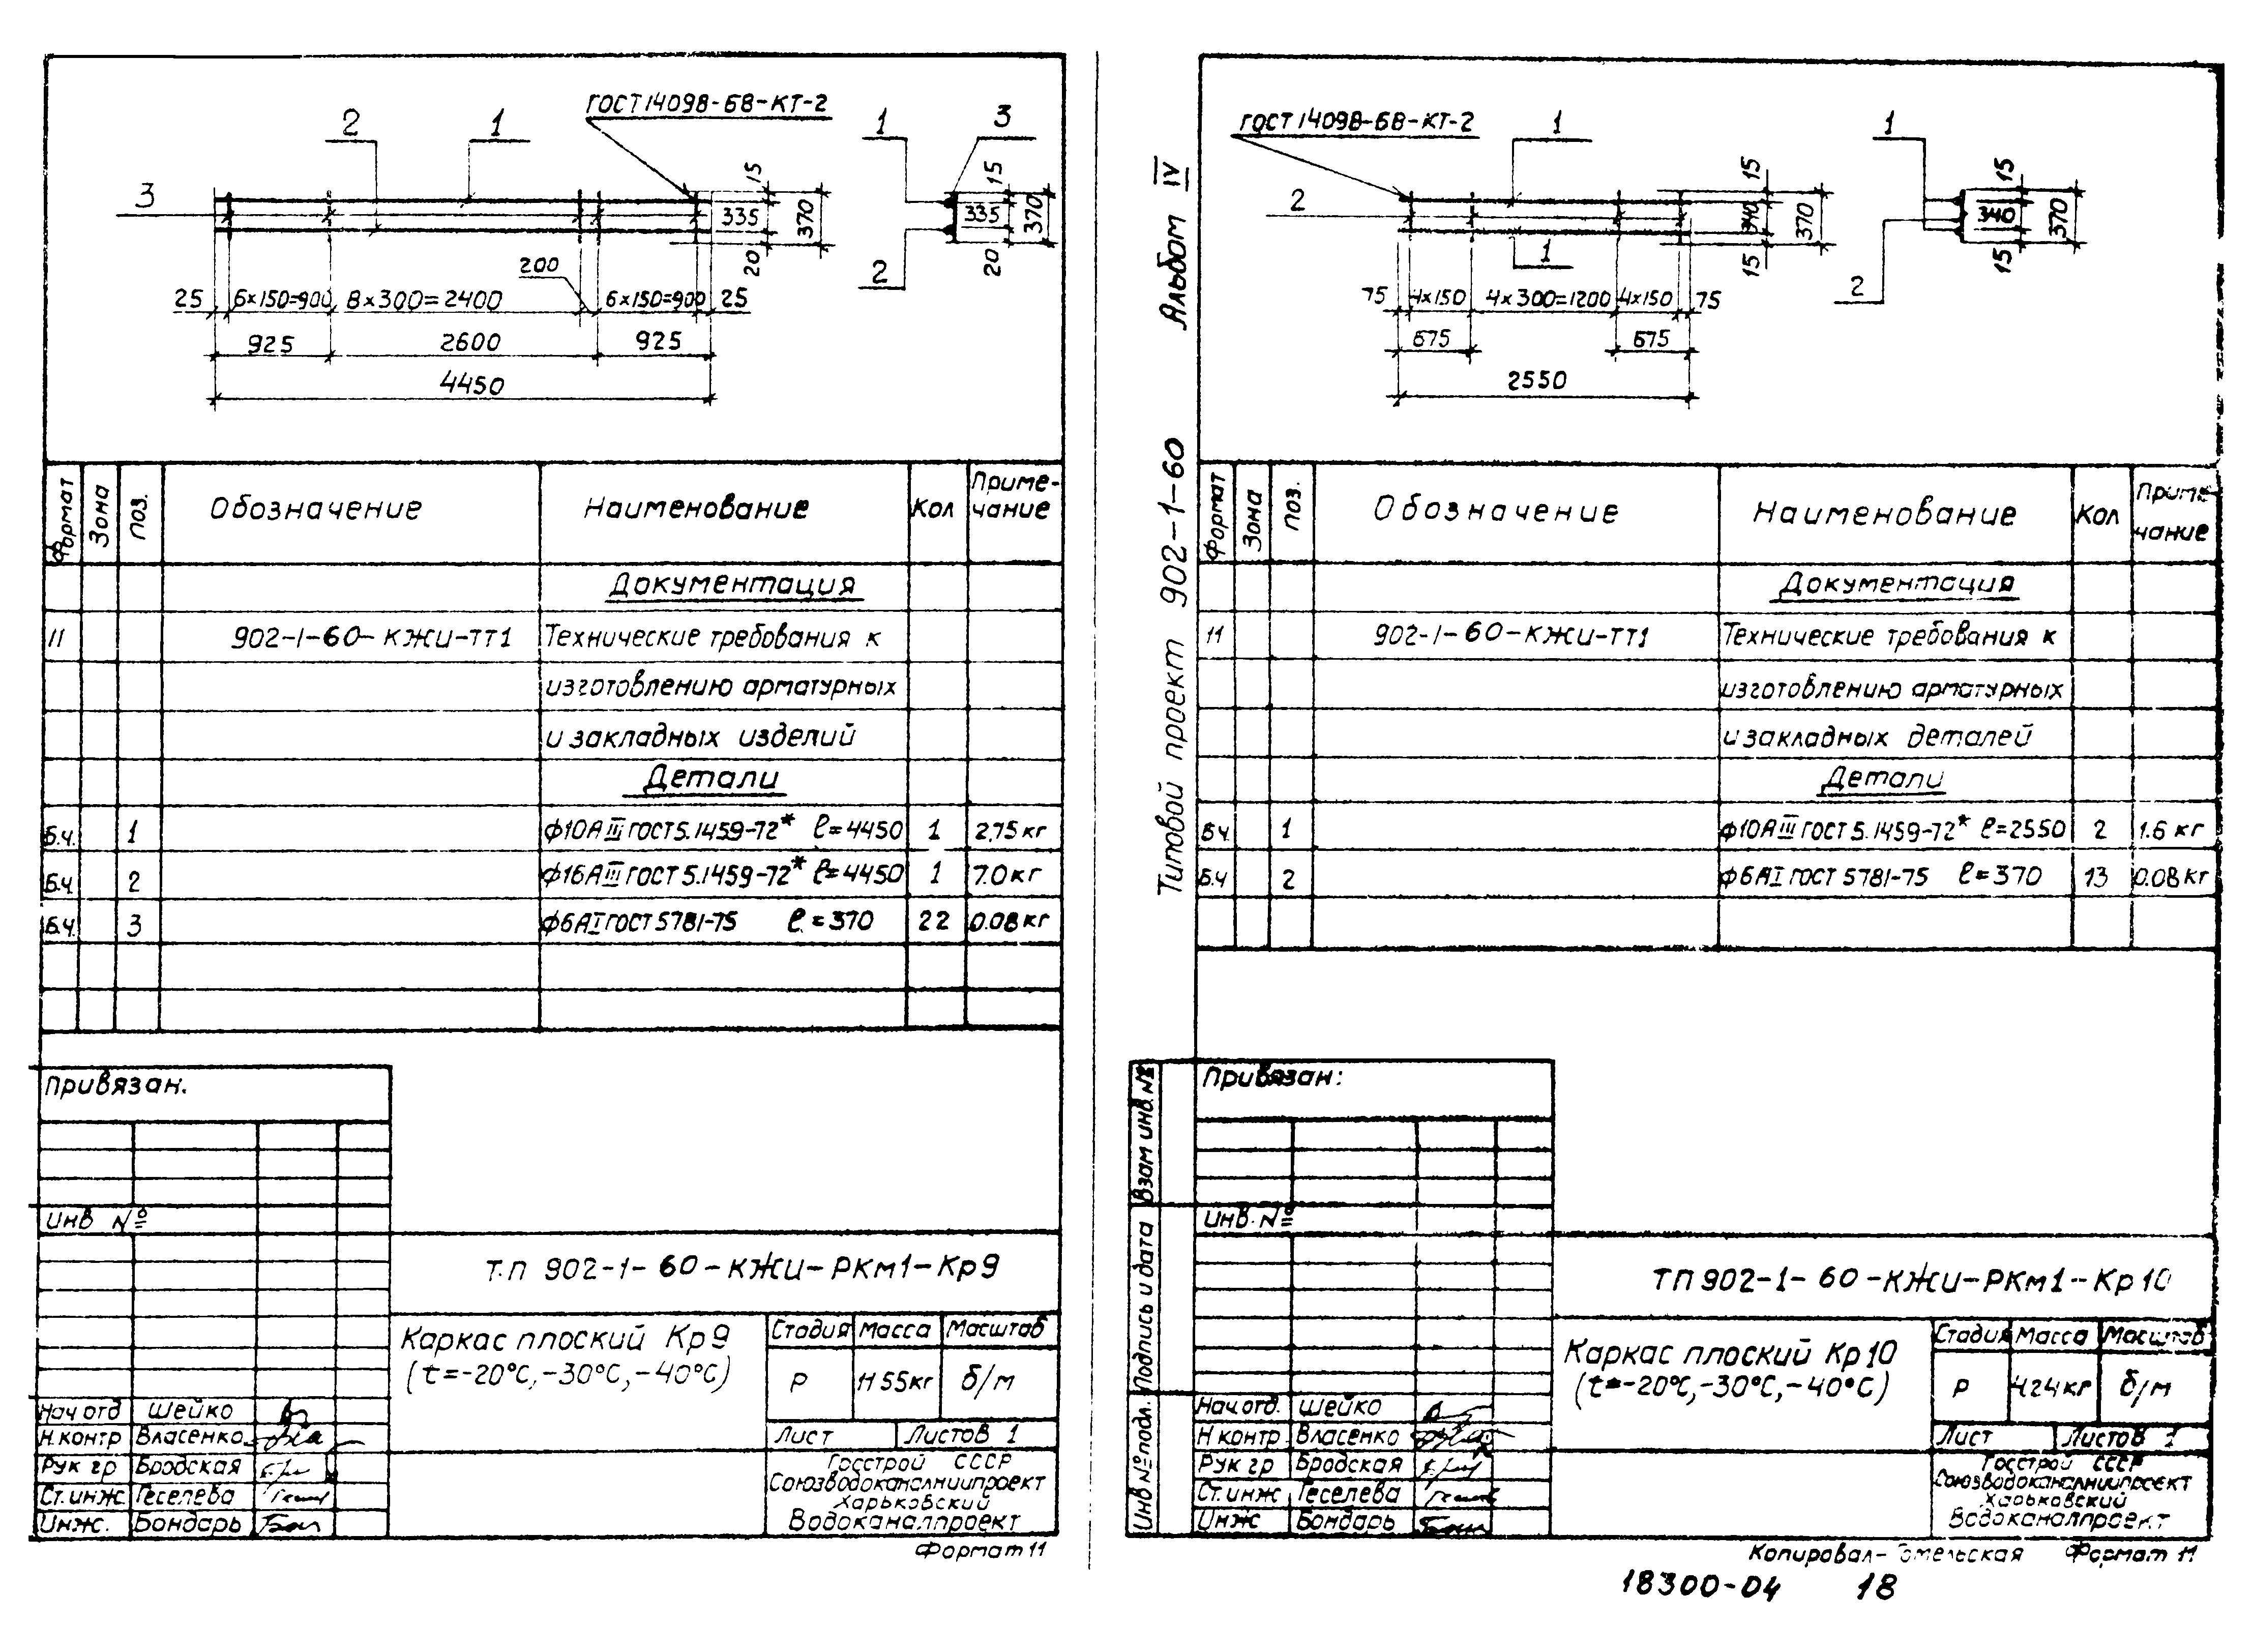 ГОСТ 14098-68-КТ-2
2 1 1 3
3
15 335 20 370
15 335 20 370
2
200
25 6×150=900 8×300=2400 6×150=900 25
925 2600 925
4450
Формат Зона Поз. Обозначение Наименование Кол Приме-
чание
Документация
11 902-1-60-КЖИ-ТТ1 Технические требования к
изготовлению арматурных
и закладных изделий
Детали
Б.Ч. 1 ф10АIII ГОСТ 5.1459-72* ℓ=4450 1 2,75 кг
Б.Ч. 2 ф16АIII ГОСТ 5.1459-72* ℓ=4450 1 7.0 кг
Б.Ч. 3 ф6АI ГОСТ 5781-75 ℓ=370 22 0.08 кг
Привязан.
Инв №
Т.П 902-1-60-КЖИ-РКм1-Кр9
Каркас плоский Кр9
(t=-20°С,-30°С,-40°С)
Стадия Масса Масштаб
Р 11 55кг б/м
Лист Листов 1
Нач отд Шейко
Н.контр Власенко
Рук гр Бродская
Ст.инж Геселева
Инж. Бондарь
Госстрой СССР
Союзводоканалниипроект
Харьковский
Водоканалпроект
Формат 11
Типовой проект 902-1-60 Альбом IV
ГОСТ 14098-68-КТ-2
1 1
2
1
2
15 340 15 370
15 340 15 370
75 4×150 4×300=1200 4×150 75
675 675
2550
Формат Зона Поз. Обозначение Наименование Кол Приме-
чание
Документация
11 902-1-60-КЖИ-ТТ1 Технические требования к
изготовлению арматурных
и закладных деталей
Детали
Б.Ч. 1 ф10АIII ГОСТ 5.1459-72* ℓ=2550 2 1.6 кг
Б.Ч 2 ф6АI ГОСТ 5781-75 ℓ=370 13 0.08 кг
Взам инв. №
Подпись и дата
Инв № подл.
Привязан:
Инв. №
ТП 902-1-60-КЖИ-РКм1-Кр10
Каркас плоский Кр10
(t=-20°С,-30°С,-40°С)
Стадия Масса Масштаб
Р 4.24кг б/м
Лист Листов 1
Нач.отд. Шейко
Н контр Власенко
Рук гр Бродская
Ст.инж Геселева
Инж Бондарь
Госстрой СССР
Союзводоканалниипроект
Харьковский
Водоканалпроект
Копировал- Гомельская Формат 11
18300-04 18